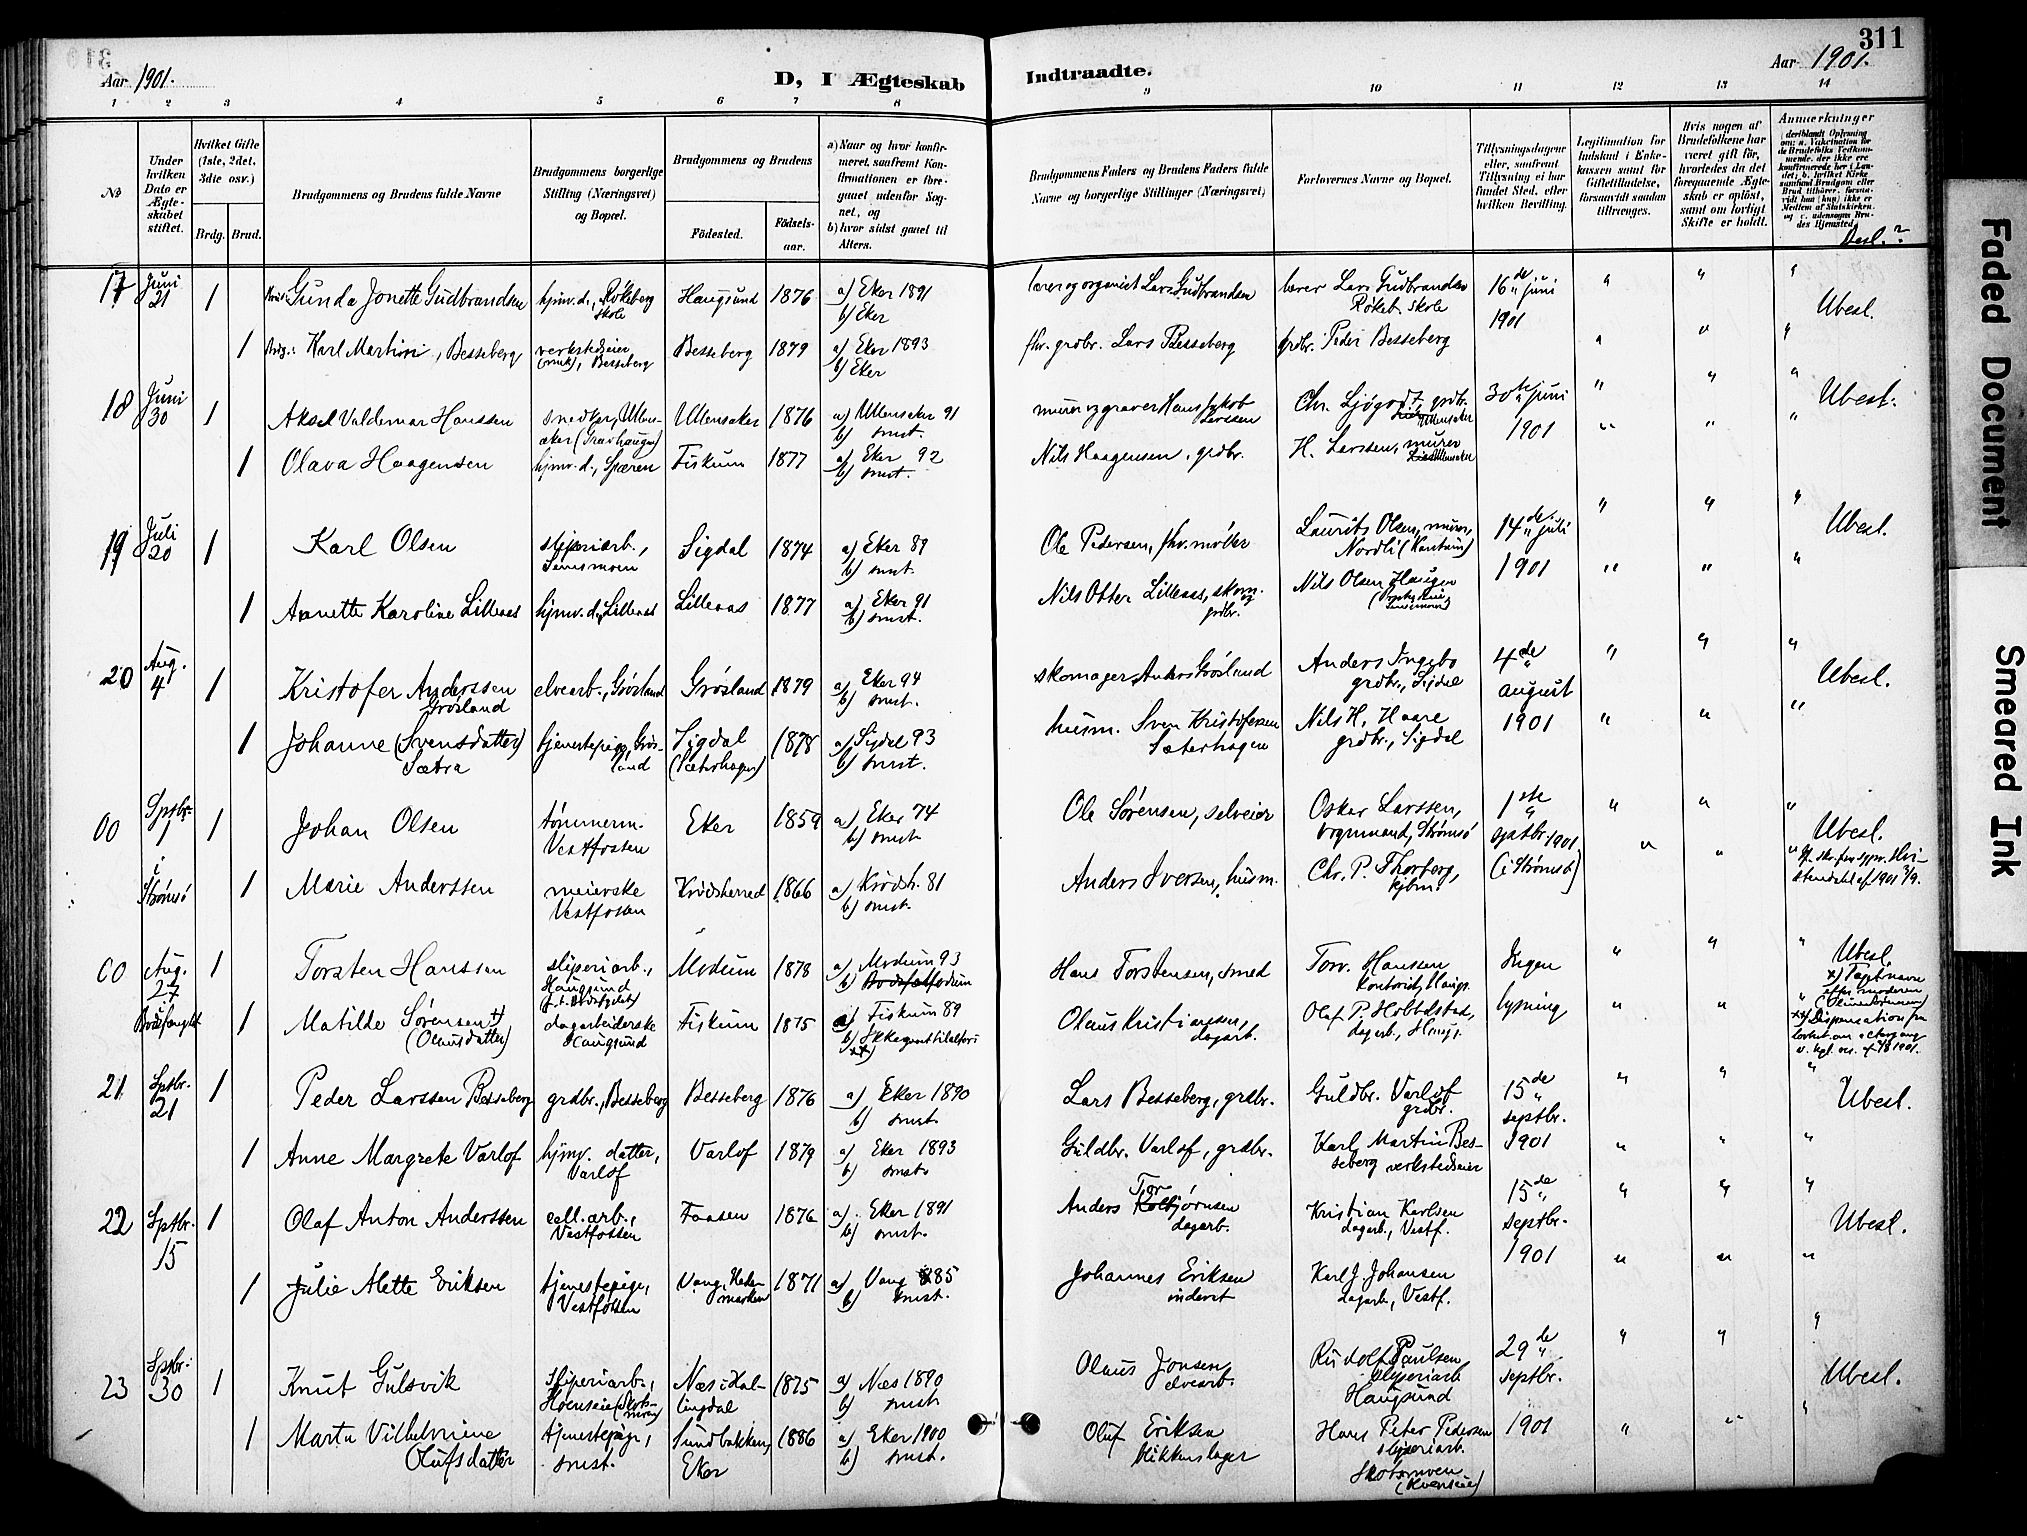 311
Aar 1901.
D, I Ægteskab
Indtraadte.
Aar 1901.
1 2 3 4 5 6 7 8 9 10 11 12 13 14
No
Under hvilken Dato er Ægteskabet stiftet.
Hvilket Gifte (1ste, 2det, 3dte osv.)
Brdg. Brud.
Brudgommens og Brudens fulde Navne
Brudgommens borgerlige Stilling (Næringsvei) og Bopæl.
Brudgommens og Brudens
Födested.
Födsels-aar.
a) Naar og hvor konfirmeret, saafremt Konfirmationen er foregaaet udenfor Sognet, og
b) hvor sidst gaaet til Alters.
Brudgommens Faders og Brudens Faders fulde Navne og borgerlige Stillinger (Næringsvei)
Forlovernes Navne og Bopæl.
Tillysningsdagene eller, saafremt Tillysning ei har fundet Sted, efter hvilken Bevilling.
Legitimation for Indskud i Enkekassen samt for Giftetilladelse, forsaavidt saadan tiltrænges.
Hvis nogen af Brudefolkene har været gift før, hvorledes da det foregaaende Ægteskab er opløst, samt om lovligt Skifte er holdt.
Anmærkninger
Besl.?
17 Juni 21 1 Gunda Jonette Gudbrandsen hjmv. d., Røkeberg skole Haugsund 1876 a) Eker 1891 b) Eker
lærer og organist Lars Gudbrandsen lærer Lars Gudbrandsen Røkeb. skole 16de juni 1901 " " " Ubesl.
1 Brdg.: Karl Martin, Besseberg verkstedseier Besseberg Besseberg 1879 a) Eker 1893 b) Eker
fhv. grdbr. Lars Besseberg grdbr. Peder Besseberg " " "
18 Juni 30 1 Aksel Valdemar Hanssen snedker, Ullensaker (Gravhaugen) Ullensaker 1876 a) Ullensaker 91 b) smst.
murer og graver Hans Jakob Larssen Chr. Ljøgodt, grdbr. Ullensaker 30te juni 1901 " " " Ubesl.
1 Olava Haagensen hjmv. d., Spæren Fiskum 1877 a) Eker 92 b) smst.
Nils Haagensen, grdbr. H. Larssen, murer Ullensaker " " "
19 Juli 20 1 Karl Olsen sliperiarb., Semsmoen Sigdal 1874 a) Eker 89 b) smst.
Ole Pedersen, fhv. møller Laurits Olsen, murer, Nordli 14de juli 1901 " " " Ubesl.
1 Annette Karoline Lilleaas hjmv. d., Lilleaas Lilleaas 1877 a) Eker 91 b) smst.
Nils Otter Lilleaas, skom. og grdbr. Nils Olsen Haugen " " "
20 Aug. 4 1 Kristofer Anderssen Grøsland elvearb., Grøsland Grøsland 1879 a) Eker 94 b) smst.
skomager Anders Grøslund Anders Ingebo grdbr., Sigdal 4de august 1901 " " " Ubesl.
1 Johanne (Svensdatter) Sætra tjenestepige, Grøsland Sigdal (Sæterhagen) 1878 a) Sigdal 93 b) smst.
husm. Sven Kristofersen Sæterhagen Nils H. Haare grdbr., Sigdal " " "
00 Sptbr. 1 i Strømsø 1 Johan Olsen tømmerm. Vestfossen Eker 1859 a) Eker 74 b) smst.
Ole Sørensen, selveier Oskar Larssen, vognmand, Strømsø 1ste sptbr. 1901 (i Strømsø) " " " Ubesl.
1 Marie Anderssen meierske Vestfossen Krødsherred 1866 a) Krødsh. 81 b) smst.
Anders Iversen, husm. Chr. P. Thorberg, kjbm. " " "
00 Aug. 27 Bodsfængslet 1 Torsten Hanssen sliperiarb., Haugsund Modum 1878 a) Modum 93 b) Modum
Hans Torstensen, smed Torv. Hanssen kontorist, Haugs. Ingen lysning " " " Ubesl.
1 Matilde Sørensen x) (Olausdatter) dagarbeiderske Haugsund Fiskum 1875 a) Fiskum 89 b) Ikke gaat til alters xx)
Olaus Kristiansen, dagarb. Olaf P. Hobbelstad, dagarb., Haugs. " " "
x) Tapt navn efter moderen xx) Dispensation
21 Sptbr. 21 1 Peder Larssen Besseberg grdbr., Besseberg Besseberg 1876 a) Eker 1890 b) smst.
Lars Besseberg, grdbr. Guldbr. Varlof grdbr. 15de septbr. 1901 " " " Ubesl.
1 Anne Margrete Varlof hjmv. datter, Varlof Varlof 1879 a) Eker 1893 b) smst.
Guldbr. Varlof, grdbr. Karl Martin Besseberg verkstedseier " " "
22 Sptbr. 15 1 Olaf Anton Anderssen cell. arb., Vestfossen Faasen 1876 a) Eker 1891 b) smst.
Anders Torbjørnsen dagarb. Kristian Karlsen dagarb., Vestf. 15de septbr. 1901 " " " Ubesl.
1 Julie Alette Eriksen tjenestepige, Vestfossen Vang, Hedemarken 1871 a) Vang 885 b) smst.
Johannes Eriksen inderst Karl J. Johansen dagarb., Vestf. " " "
23 Sptbr. 30 1 Knut Gulsvik sliperiarb., Næs i Hallingdal 1875 a) Næs 1890 b) smst.
Olaus Jonsen elvearb. Rudolf Paulsen sliperiarb. Haugsund 29de septbr. 1901 " " " Ubesl.
1 Marta Vilhelmine Olufsdatter tjenestepige, smst. Sundbakken, Eker 1886 a) Eker 1900 b) smst.
Oluf Eriksen blikkenslager Hans Peter Pedersen sliperiarb. Skotsmoen " " "
Faded Document
Smeared Ink